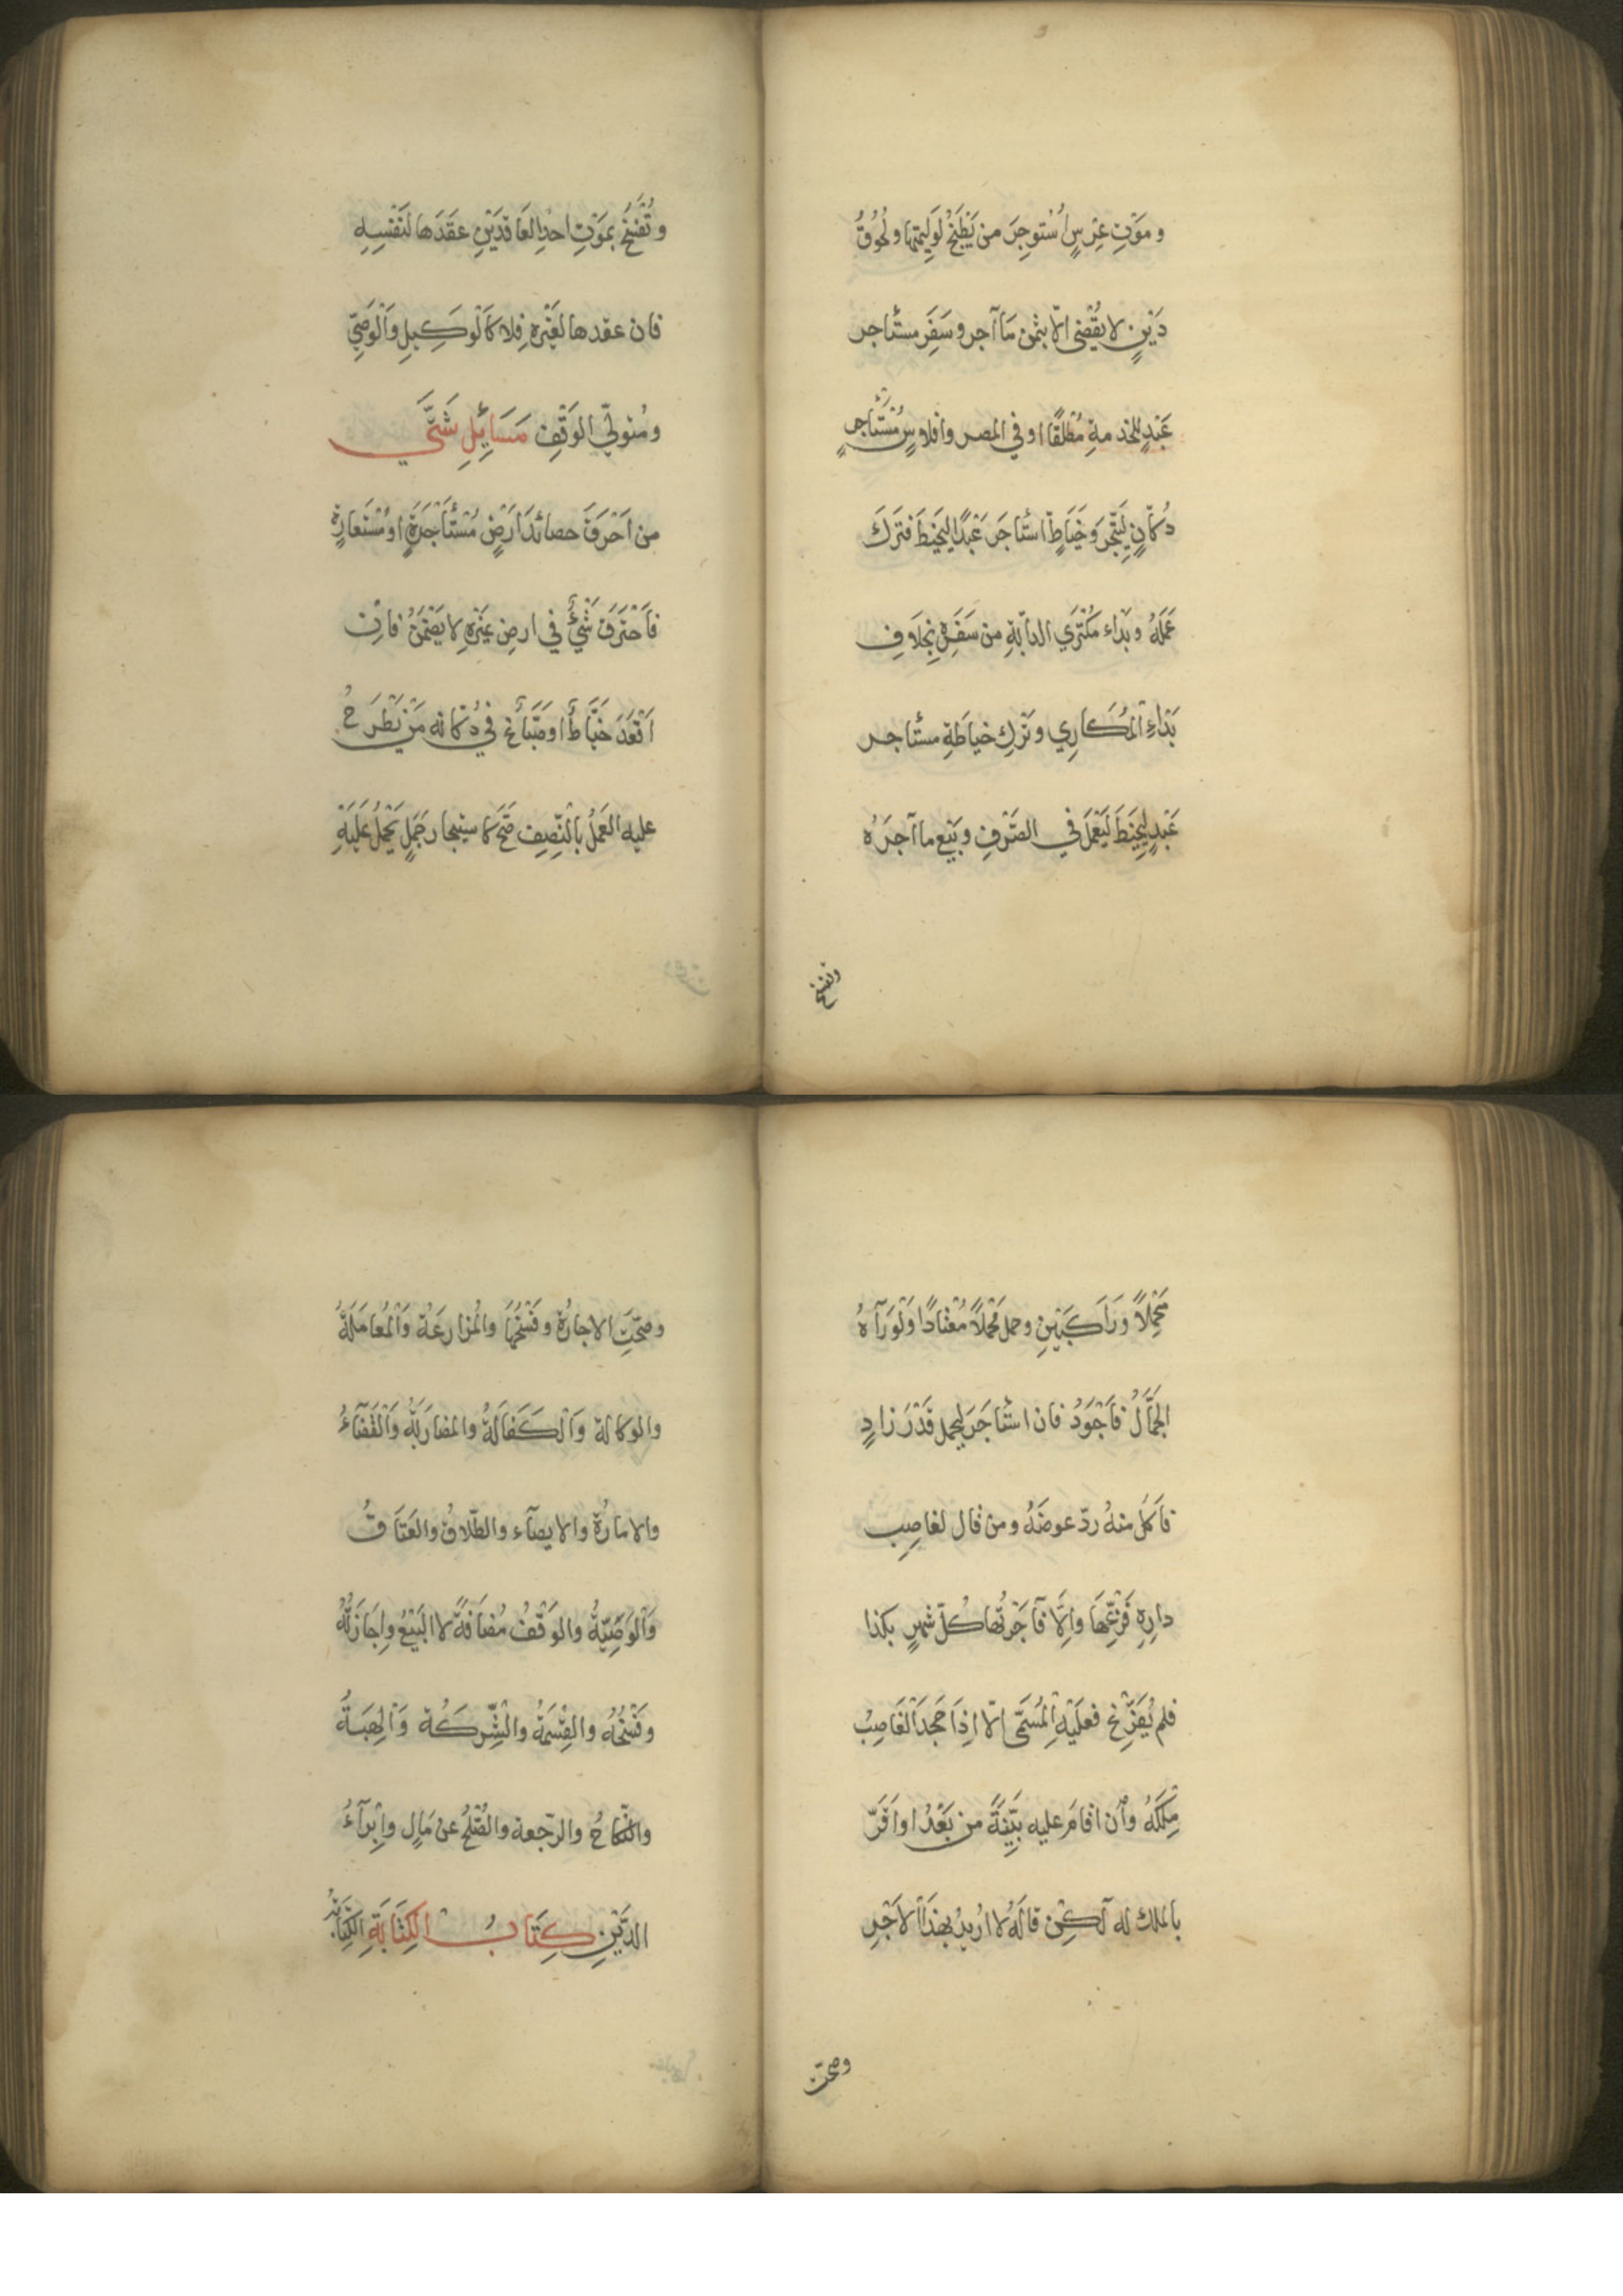 و مَوْتِ عِرْسٍ اُسْتوجِرَ من يَطْبَخُ لوَلِيمَتِها و لُحُوقُ
دَيْنٍ لا يُقْضى الّا بثمن مَا آجر و سَفَرِ مستأجر
عَبْدٍ للخدمةِ مُطْلَقًا او في المصر وافلاسِ مُسْتَأجرِ
دُكّانٍ لِيَتَّجِرَ وَخَيَاطٍ استَأجَرَ عَبْدًا ليَخِيطَ فتَرَكَ
عَمَلَهُ وبَدَاء مُكْتَرِي الدآبّةِ من سَفَرِهِ بِخِلَافِ
بَدَاءِ الْمُكَارِي وتَرْكِ خياطَةِ مستأجر
عَبْدٍ لِيَخِيطَ لَيَعْمَلَ في الصَّرْفِ وبَيْعِ ما آجَرَهُ
وتفسخ
و تُفْسَخُ بمَوْتِ احدِ العَاقدَيْنِ عقَدَها لنَفْسِهِ
فان عقدها لغَيْرِهِ فلا كَالْوَكِيلِ وَالْوَصِيِّ
ومُتولّي الوَقْفِ مَسَائِلِ شَتَّي
من اَحْرَقَ حصائدَ اَرْضٍ مُسْتَأجَرَةٍ او مُسْتَعارةٍ
فَاحْتَرَقَ شَيْءٌ في ارضِ غيْرِهِ لا يَضْمَنُ فان
اَقْعَدَ خَيَّاطٌ او صَبّاغٌ في دُكّانه مَنْ يَطْرَحُ
عليه العَمَلَ بالنّصِفِ صَحَّ كاستيجار جَمَلٍ يَحْمِلُ عَلَيْهِ
مَحْمِلًا وَرَاكِبَيْنِ وحمل مَحْمِلًا مُعْتَادًا وَلَوْ رَآهُ
الجَمَّالُ فاَجْوَدُ فان استَأجَرَ ليحمل قَدْرَ زادٍ
فاَكَل منهُ ردّ عوضَهُ ومن قال لغاصِبِ
دارِهِ فَرِّغْهَا واِلَّا فآجَرْتُها كُلّ شهرٍ بكذا
فلم يُفَرِّغ فعلَيْهِ الْمُسَمّى الّا اذِا جَحدَ الْغَاصِبُ
مِلكَهُ واِن اقامَ عليه بيّنَةً من بَعْدُ او اَقَرّ
بالملك له لكِن قالَ لا اُريدُ بهذَا الاَجْرِ
وصحّت
وصحّتِ الاجارَةُ وفَسْخُها والمُزارعَة وَالْمُعامَلَةُ
والوكالة وَالْكَفَالَةُ والمضاربَةُ وَالْقَضَاءُ
والامارَةُ والايصآء والطّلاقُ والعَتَاقُ
وَالْوَصِيَّةُ والوَقْفُ مُضافَةً لا البَيْعُ واِجَازَتُهُ
وفَسْخُهُ والقِسْمَةُ والشِّركَة وَالهِبَةُ
والنّكاحُ والرّجعة والصُّلحُ عن مَالٍ واِبْرَآءُ
الدَّيْنِ كِتَابُ الْكِتَابَةِ الكِتَابَةُ